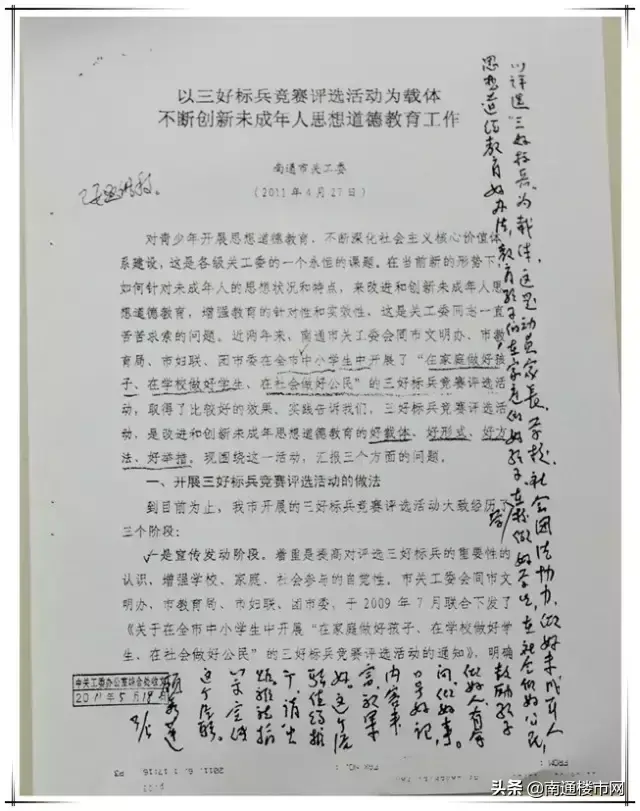 以三好标兵竞赛评选活动为载体
不断创新未成年人思想道德教育工作
南通市关工委
(2011年4月27日)
对青少年开展思想道德教育，不断深化社会主义核心价值体
系建设，这是各级关工委的一个永恒的课题。在当前新的形势下，
如何针对未成年人的思想状况和特点，来改进和创新未成年人思
想道德教育，增强教育的针对性和实效性，这是关工委同志一直
苦苦求索的问题。近两年来，南通市关工委会同市文明办、市教
育局、市妇联、团市委在全市中小学生中开展了“在家庭做好孩
子、在学校做好学生、在社会做好公民”的三好标兵竞赛评选活
动，取得了比较好的效果。实践告诉我们，三好标兵竞赛评选活
动，是改进和创新未成年思想道德教育的好载体、好形式、好方
法、好举措。现围绕这一活动，汇报三个方面的问题。
一、开展三好标兵竞赛评选活动的做法
到目前为止，我市开展的三好标兵竞赛评选活动大致经历
三个阶段：
一是宣传发动阶段。着重是提高对评选三好标兵的重要性的
认识，增强学校、家庭、社会参与的自觉性。市关工委会同市文
明办、市教育局、市妇联、团市委，于2009年7月联合下发了
《关于在全市中小学生中开展“在家庭做好孩子、在学校做好学
生、在社会做好公民”的三好标兵竞赛评选活动的通知》，明确
以评选“三好标兵”为载体，这是动员家长、学校、社会团结协力，做好未成年人
思想道德教育好办法，教育孩子们在家庭做好孩子，在学校做好学生，在社会做好公民，
鼓励孩子
做好人有学
问，做好事。
口号好记，
内容丰
富效果
好。这个
顾秀莲
中关工委办公室综合处收文
2011年5月18日
2011. 6. 1 17:16
P3
FAX NO. :
FROM :
头条 @南通楼市网